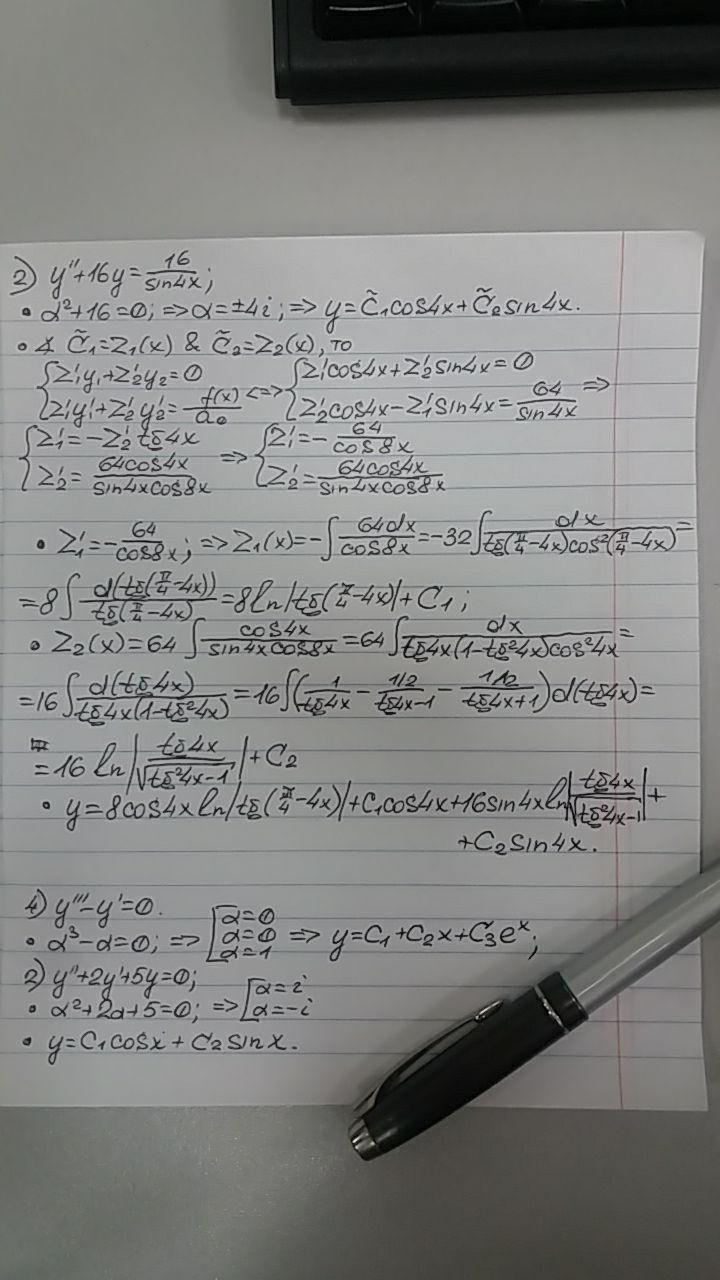 2) y''+16y=16/sin4x;
• α²+16=0; => α=±4i; => y=C̃₁cos4x+C̃₂sin4x.
• ∡ C̃₁=Z₁(x) & C̃₂=Z₂(x), то
{Z₁'y₁+Z₂'y₂=0 {Z₁'cos4x+Z₂'sin4x=0
{Z₁'y₁'+Z₂'y₂'=f(x)/a₀ <=> {Z₂'cos4x-Z₁'sin4x=64/sin4x =>
{Z₁'=-Z₂'tg4x => {Z₁'=-64/cos8x
{Z₂'=64cos4x/sin4xcos8x {Z₂'=64cos4x/sin4xcos8x
• Z₁'=-64/cos8x; => Z₁(x)=-∫64dx/cos8x=-32∫dx/tg(π/4-4x)cos²(π/4-4x)=
=8∫d(tg(π/4-4x))/tg(π/4-4x)=8ln|tg(π/4-4x)|+C₁;
• Z₂(x)=64∫cos4x/sin4xcos8x=64∫dx/tg4x(1-tg²4x)cos²4x=
=16∫d(tg4x)/tg4x(1-tg²4x)=16∫(1/tg4x-1/2/tg4x-1-1/2/tg4x+1)d(tg4x)=
=16 ln|tg4x/√tg²4x-1|+C₂
• y=8cos4x ln|tg(π/4-4x)|+C₁cos4x+16sin4x ln|tg4x/√tg²4x-1|+
+C₂sin4x.
4) y'''-y'=0.
• α³-α=0; => [α=0 α=0 α=1 => y=C₁+C₂x+C₃eˣ;
2) y''+2y'+5y=0;
• α²+2α+5=0; => [α=i α=-i
• y=C₁cosx+C₂sinx.